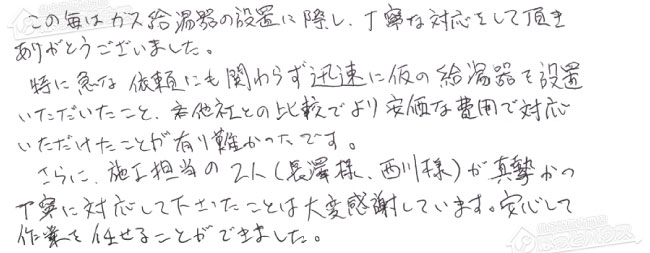 この毎はガス給湯器の設置に際し、丁寧な対応をして頂き
ありがとうございました。
特に急な依頼にも関わらず迅速に仮の給湯器を設置
いただいたこと、若他社との比較でより安価な費用で対応
いただけたことが有り難かったです。
さらに、施工担当の2人(長澤様、西川様)が真摯かつ
丁寧に対応して下さったことは大変感謝しています。安心して
作業を任せることができました。